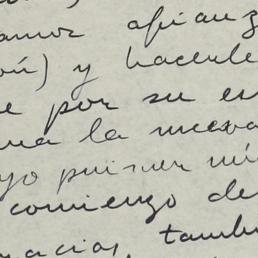 amor afianz
ón) y hacerle
e por su en
na la nueva
yo primer mi
comienzo de
racias, tambi